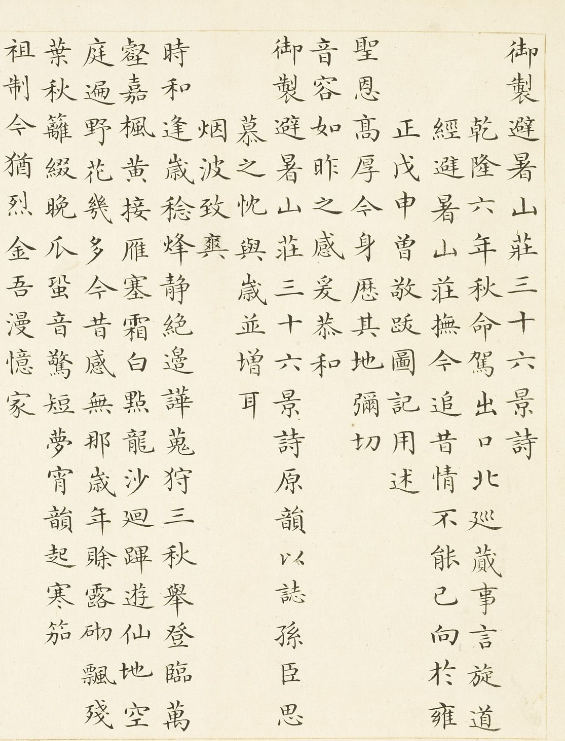 御製避暑山莊三十六景詩
乾隆六年秋命駕出口北廵蕆事言旋道
經避暑山莊撫今追昔情不能已向於雍
正戊申曽敬跋圖記用述
聖恩髙厚今身歷其地彌切
音容如昨之感爰恭和
御製避暑山莊三十六景詩原韻以誌孫臣思
慕之忱與嵗並增耳
烟波致爽
時和逢嵗稔烽静絶邉譁蒐狩三秋舉登臨萬
壑嘉楓黄接雁塞霜白點龍沙廻蹕遊仙地空
庭遍野花幾多今昔感無那嵗年賒露砌飄殘
葉秋籬綴晚瓜蛩音驚短夢宵韻起寒笳
祖制今猶烈金吾漫憶家